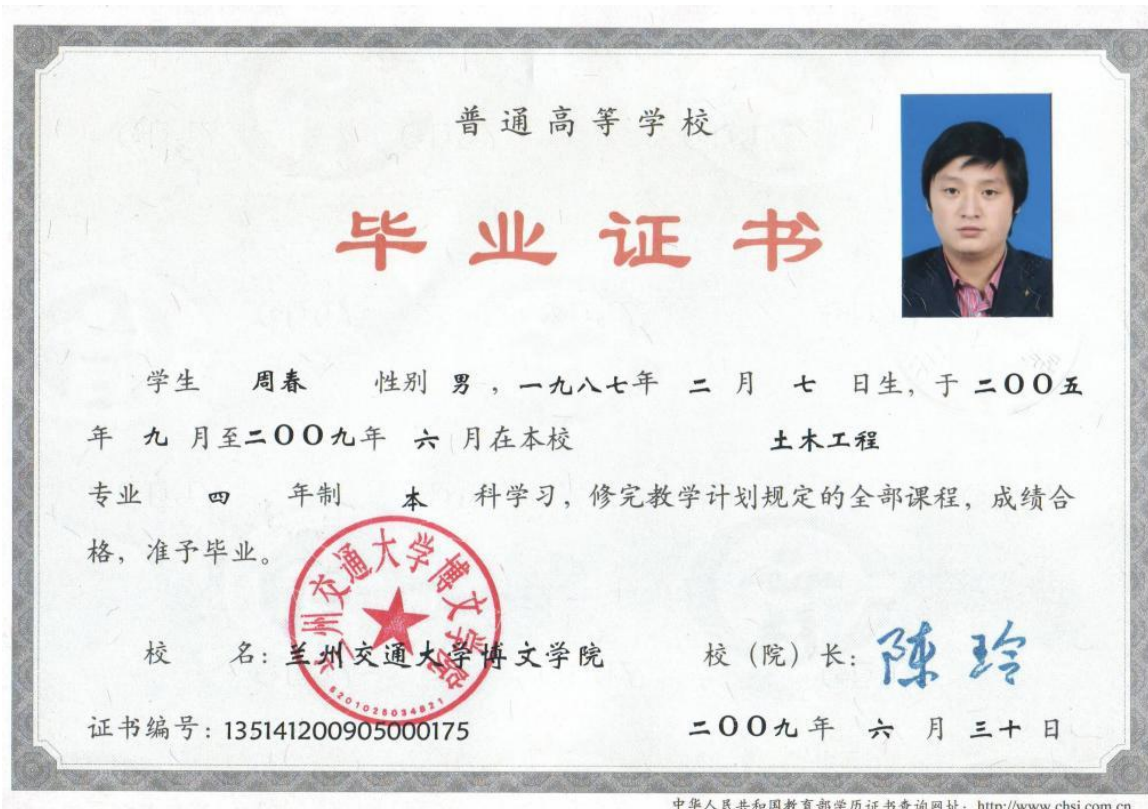 普通高等学校
毕业证书
学生 周春 性别 男，一九八七年 二 月 七 日生，于 二〇〇五
年 九 月至二〇〇九年 六 月在本校 土木工程
专业 四 年制 本 科学习，修完教学计划规定的全部课程，成绩合
格，准予毕业。
兰州交通大学博文学院
6201025034821
校 名：兰州交通大学博文学院 校（院）长：陈玲
证书编号：135141200905000175 二〇〇九年 六 月 三十 日
中华人民共和国教育部学历证书查询网址：http://www.chsi.com.cn